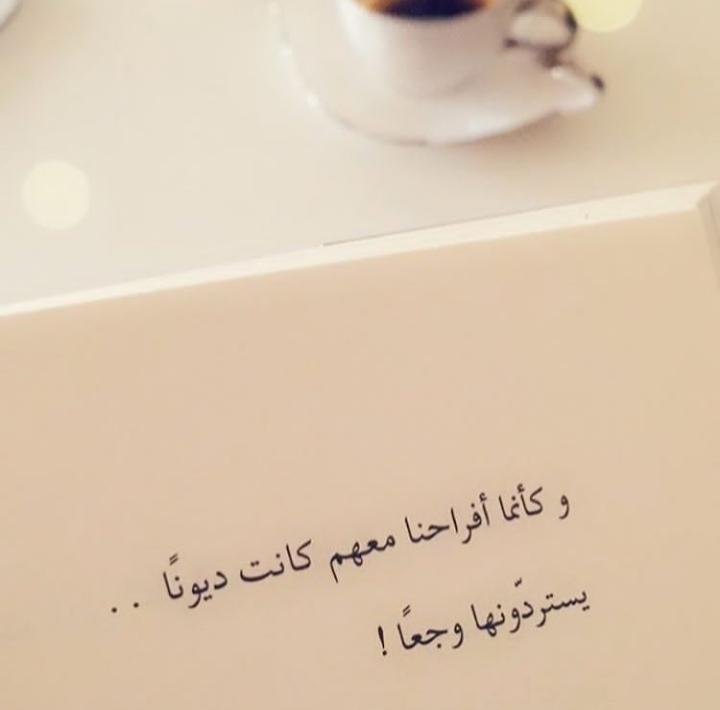 و كأنما أفراحنا معهم كانت ديونًا . .
يستردّونها وجعًا !